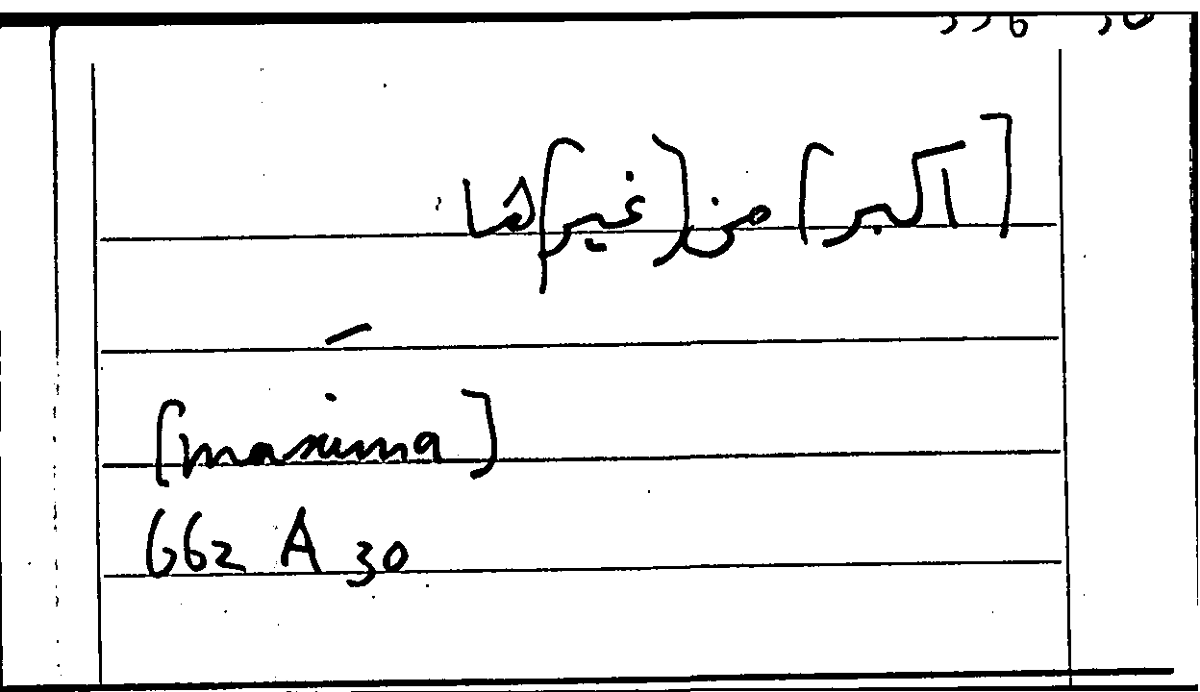 [اكبر] من (غير)ها
–
[maxima]
662 A 30